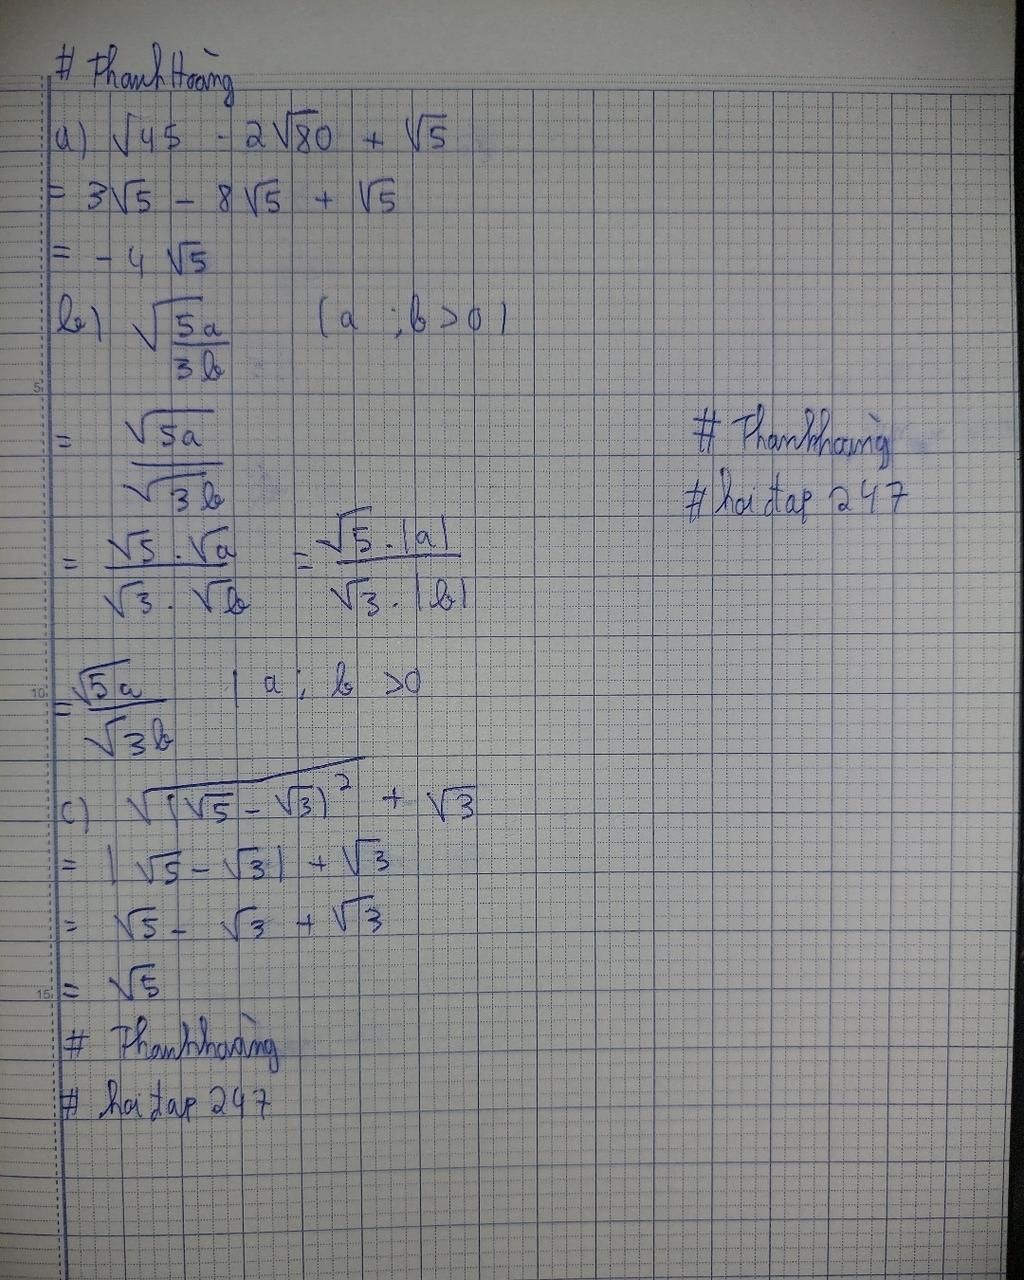 # ThanhHoàng
a) √45 - 2√80 + √5
= 3√5 - 8√5 + √5
= - 4 √5
b) √(5a/3b) (a ; b > 0)
= √5a / √3b
= √5 . √a / √3 . √b = √5 . |a| / √3 . |b|
= √5a / √3b ( a ; b > 0
c) √((√5 - √3)²) + √3
= | √5 - √3 | + √3
= √5 - √3 + √3
= √5
# Thanhhoàng
# hoi đap 247
# Thanhhoàng
# hoi đap 247
5
10
15